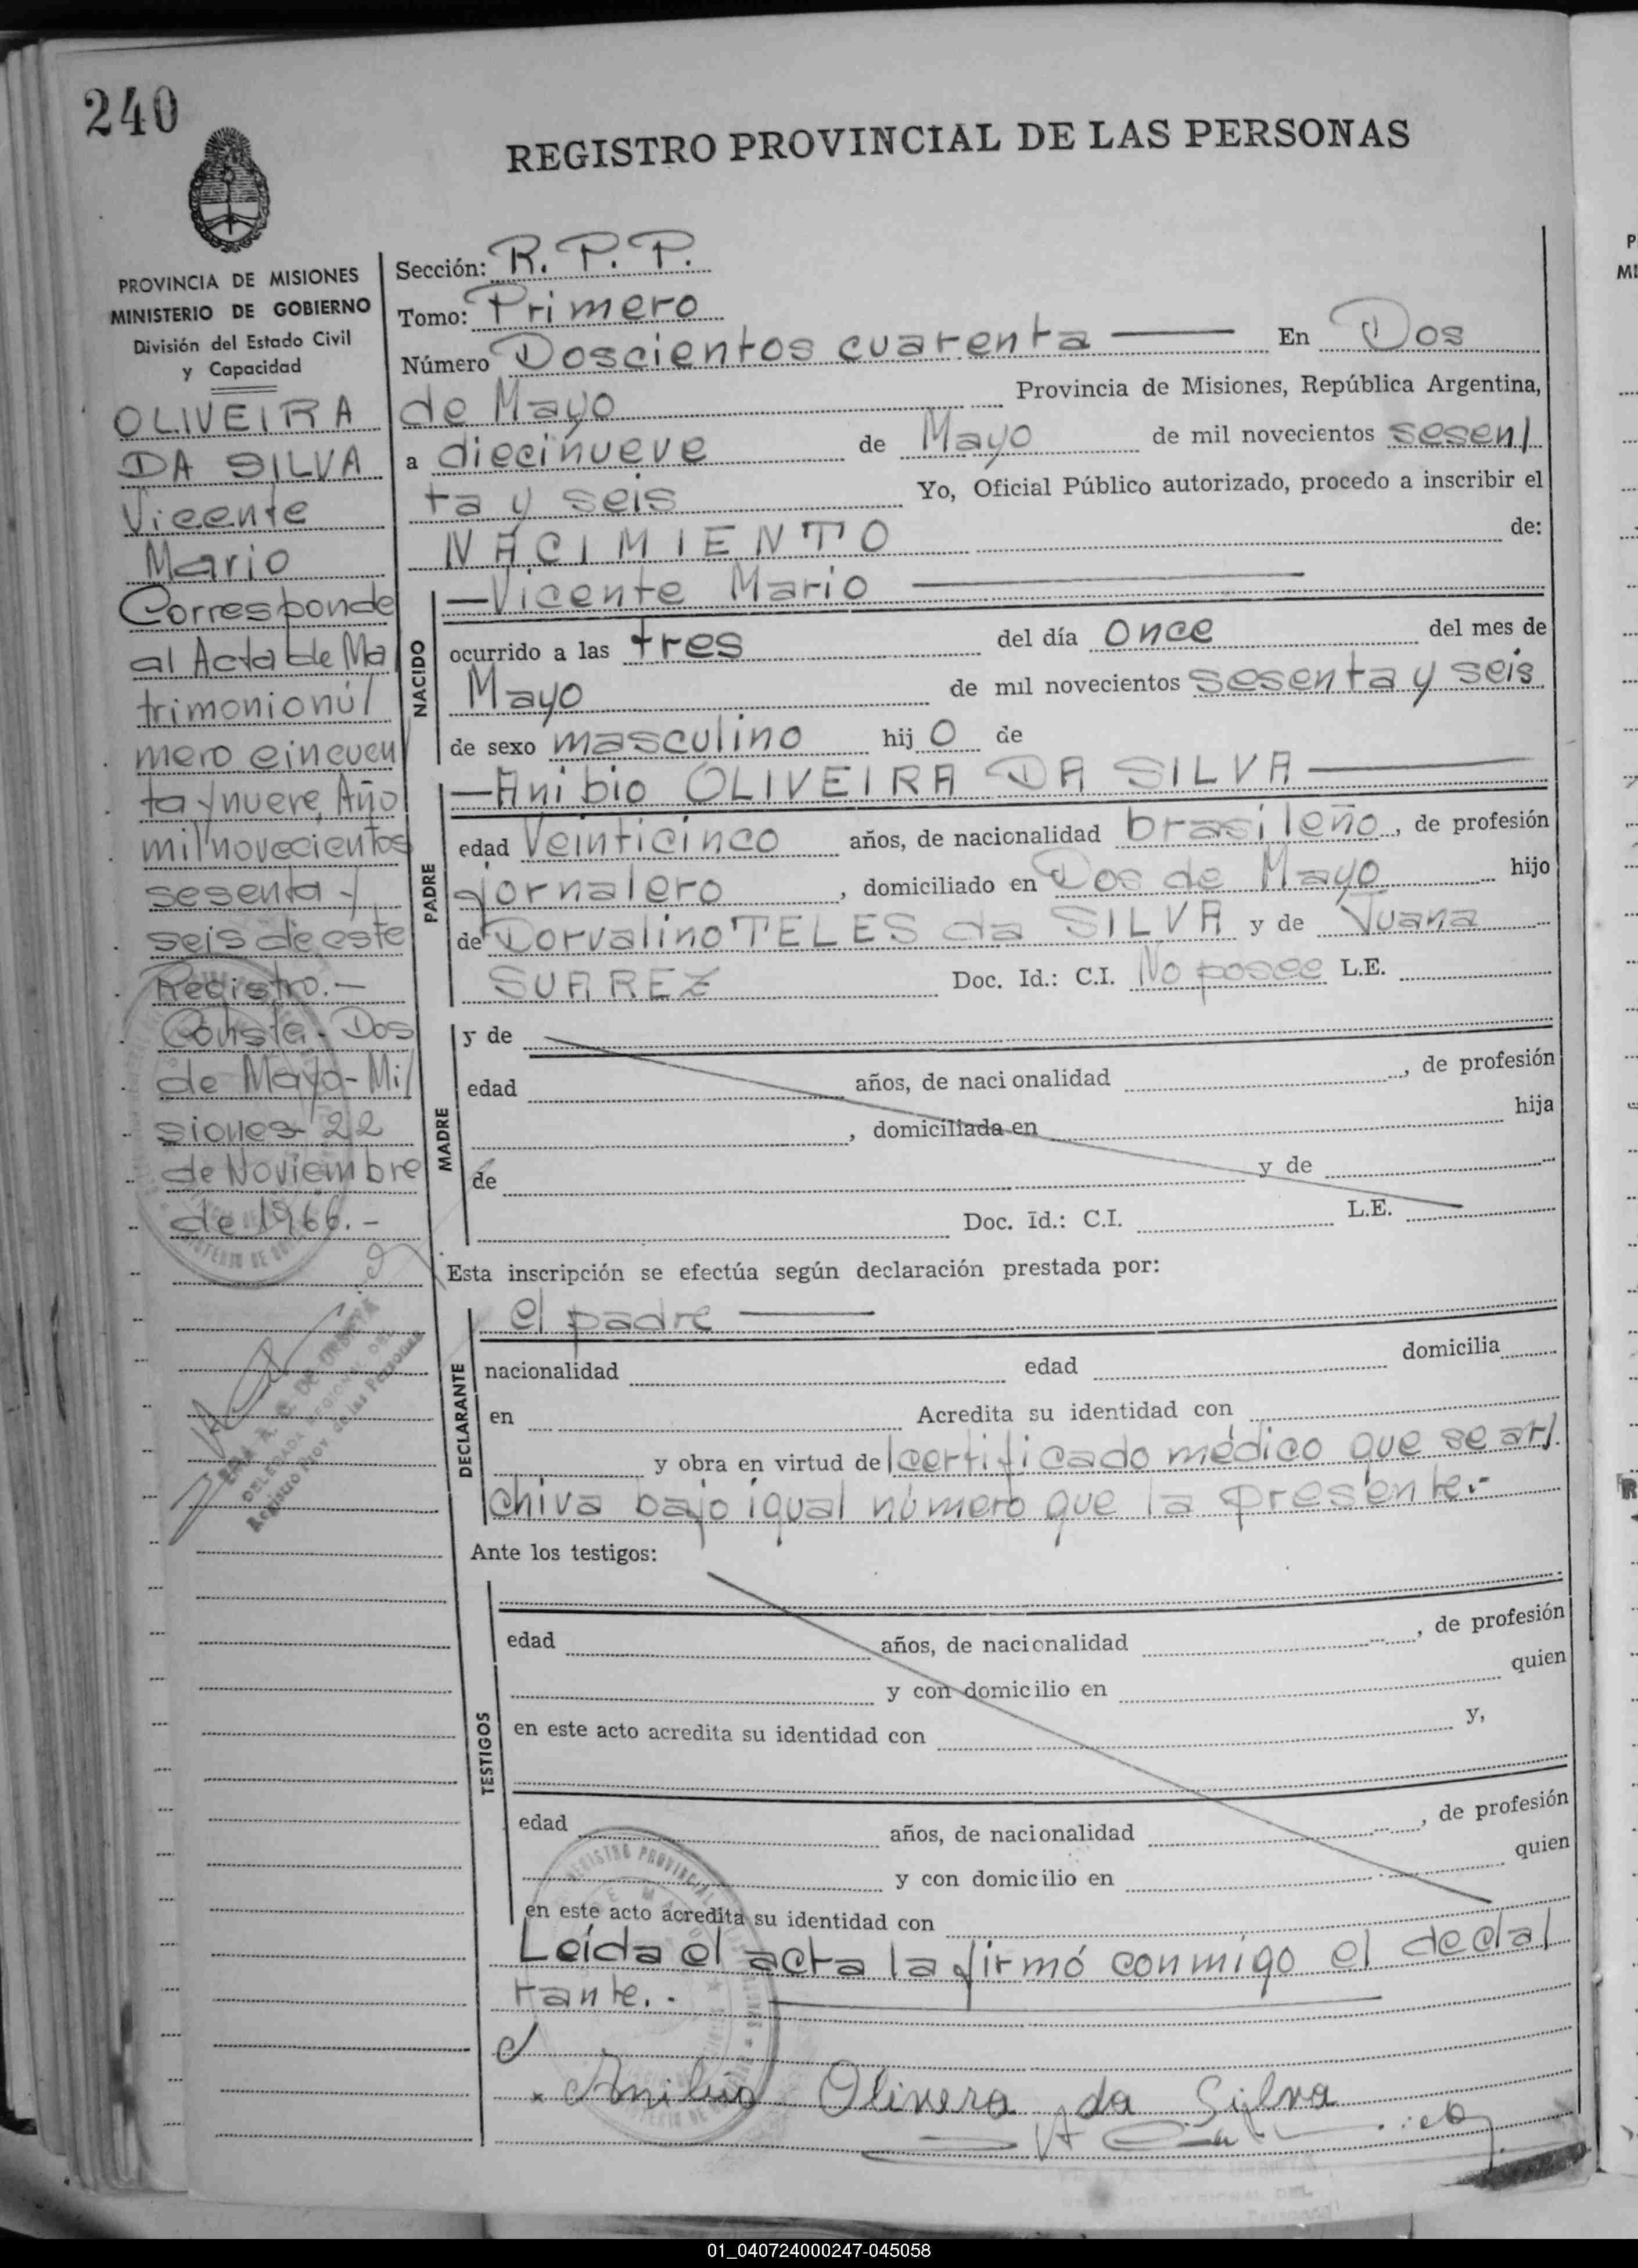 240
REGISTRO PROVINCIAL DE LAS PERSONAS
PROVINCIA DE MISIONES
MINISTERIO DE GOBIERNO
División del Estado Civil
y Capacidad
OLIVEIRA
DA SILVA
Vicente
Mario
Corresponde
al Acta de Ma
trimonio nú/
mero cincuen/
ta y nueve, Año
mil novecientos
sesenta y
seis de este
Registro.-
Conste. Dos
de Mayo-Mi/
siones 22
de Noviembre
de 1966.-
DELEGADA REGIONAL DEL
Registro Prov. de las Personas
Sección: R. P. P.
Tomo: Primero
Número Doscientos cuarenta — En Dos
de Mayo Provincia de Misiones, República Argentina,
a diecinueve de Mayo de mil novecientos sesen/
ta y seis Yo, Oficial Público autorizado, procedo a inscribir el
NACIMIENTO de:
NACIDO
—Vicente Mario —
ocurrido a las tres del día once del mes de
Mayo de mil novecientos sesenta y seis
de sexo masculino hij o de
PADRE
—Anibio OLIVEIRA DA SILVA—
edad Veinticinco años, de nacionalidad brasileño, de profesión
jornalero, domiciliado en Dos de Mayo hijo
de Dorvalino TELES da SILVA y de Juana
SUAREZ Doc. Id.: C.I. No posee L.E.
MADRE
y de
edad años, de nacionalidad , de profesión
, domiciliada en hija
de y de
Doc. Id.: C.I. L.E.
Esta inscripción se efectúa según declaración prestada por:
DECLARANTE
el padre —
nacionalidad edad domicilia
en Acredita su identidad con
y obra en virtud de certificado médico que se ar/
chiva bajo igual número que la presente.-
Ante los testigos:
TESTIGOS
edad años, de nacionalidad , de profesión
y con domicilio en quien
en este acto acredita su identidad con y,
edad años, de nacionalidad , de profesión
y con domicilio en quien
en este acto acredita su identidad con
Leída el acta la firmó conmigo el decla/
rante.-
x Anibio Olivera da Silva
01_040724000247-045058